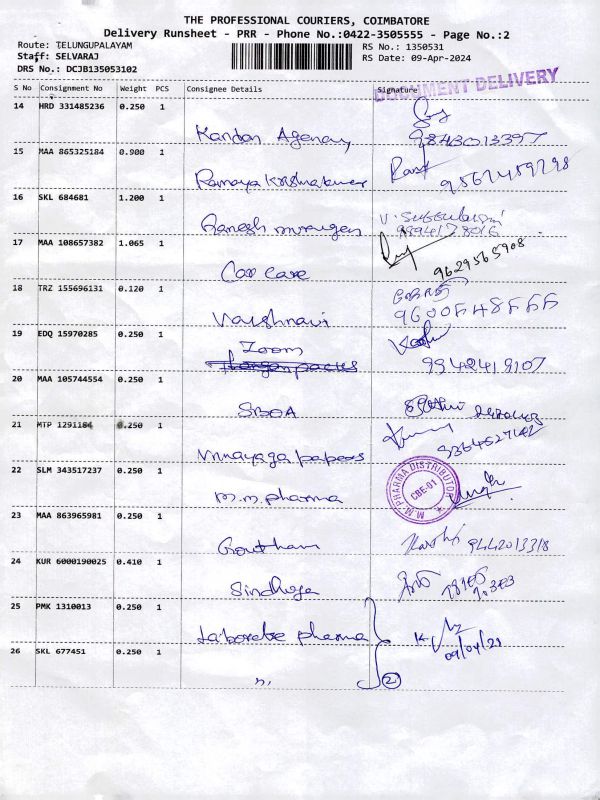 THE PROFESSIONAL COURIERS, COIMBATORE
Delivery Runsheet - PRR - Phone No.:0422-3505555 - Page No.:2
Route: TELUNGUPALAYAM
RS No.: 1350531
Staff: SELVARAJ
RS Date: 09-Apr-2024
DRS No.: DCJB135053102
DOCUMENT DELIVERY
S No Consignment No Weight PCS Consignee Details Signature
14 HRD 331485236 0.250 1
Kandan Agency 9843013397
15 MAA 865325184 0.900 1
Ramaya Krishnakumar
16 SKL 684681 1.200 1
Ganesh murugan
17 MAA 108657382 1.065 1
9629565908
Car care
18 TRZ 155696131 0.120 1
Vaishnavi
19 EDQ 15970285 0.250 1
Zoom
9942419107
20 MAA 105744554 0.250 1
SBOA
21 MTP 1291184 0.250 1
Vinnayaga papers
22 SLM 343517237 0.250 1
M.M. PHARMA DISTRIBUTOR
CBE-01
m.m. pharma
23 MAA 863965981 0.250 1
Goutham 9442013318
24 KUR 6000190025 0.410 1
Sindhuja
25 PMK 1310013 0.250 1
Laborate pharma
26 SKL 677451 0.250 1
2